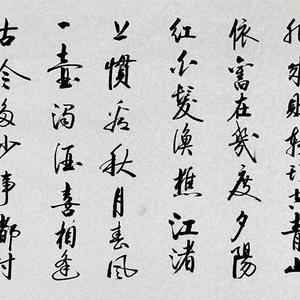 非成敗轉頭空青山
依舊在幾度夕陽
紅白髮漁樵江渚
上慣看秋月春風
一壺濁酒喜相逢
古今多少事都付